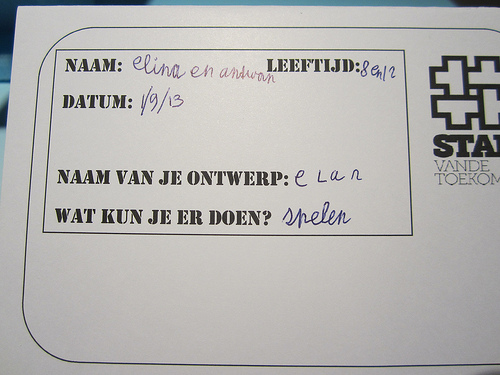 NAAM: elina en antwan LEEFTIJD: 8 en 12
DATUM: 1/9/13
NAAM VAN JE ONTWERP: eLan
WAT KUN JE ER DOEN? spelen
STA
VANDE
TOEKOM